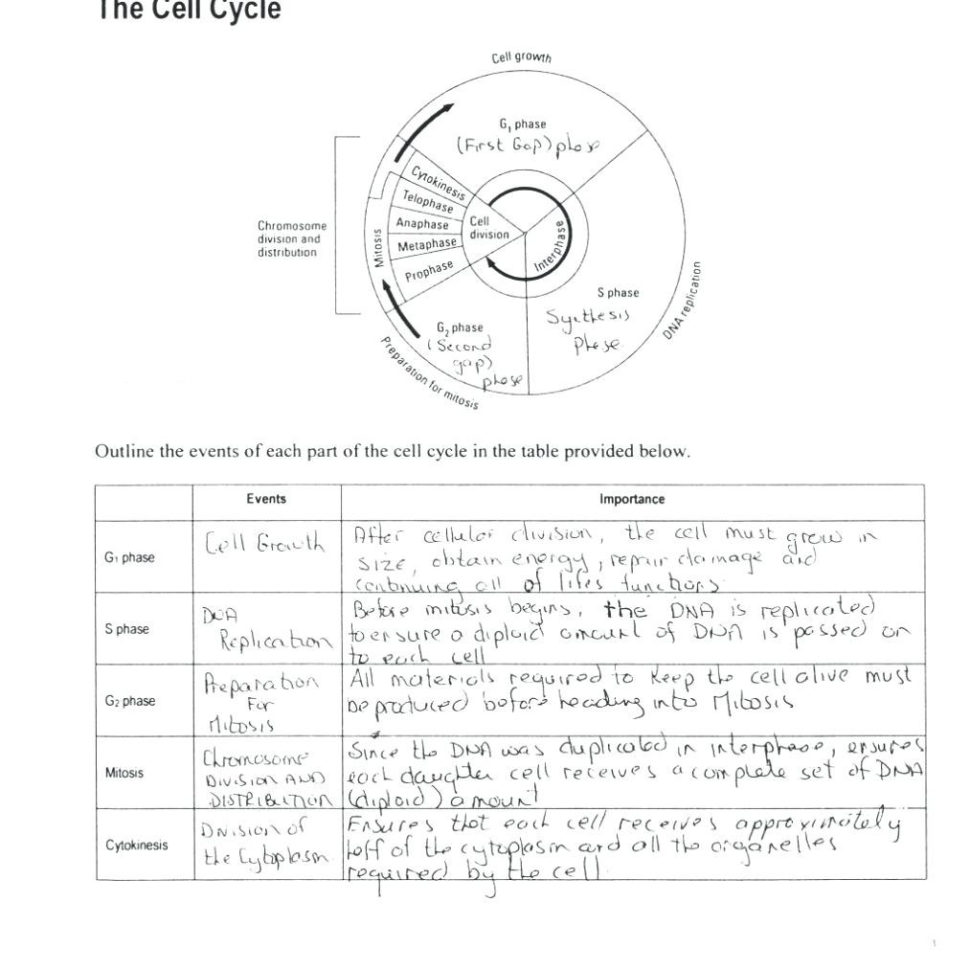 The Cell Cycle
Cell growth
G₁ phase
(First Gap) phase
Cytokinesis
Telophase
Anaphase
Metaphase
Prophase
Mitosis
Cell
division
Interphase
Chromosome
division and
distribution
S phase
Synthesis
Phase
DNA replication
G₂ phase
(Second
gap)
phase
Preparation for mitosis
Outline the events of each part of the cell cycle in the table provided below.
Events
Importance
G₁ phase
Cell Growth
After cellular division, the cell must grow in
size, obtain energy, repair damage and
continuing all of lifes functions
S phase
DNA
Replication
Before mitosis begins, the DNA is replicated
to ensure a diploid amount of DNA is passed on
to each cell
G₂ phase
Preparation
For
Mitosis
All materials required to keep the cell alive must
be produced before heading into Mitosis
Mitosis
Chromosome
DIVISION AND
DISTRIBUTION
Since the DNA was duplicated in interphase, ensures
each daughter cell receives a complete set of DNA
(diploid) amount
Cytokinesis
Division of
the Cytoplasm
Ensures that each cell receives approximately
half of the cytoplasm and all the organelles
required by the cell
1